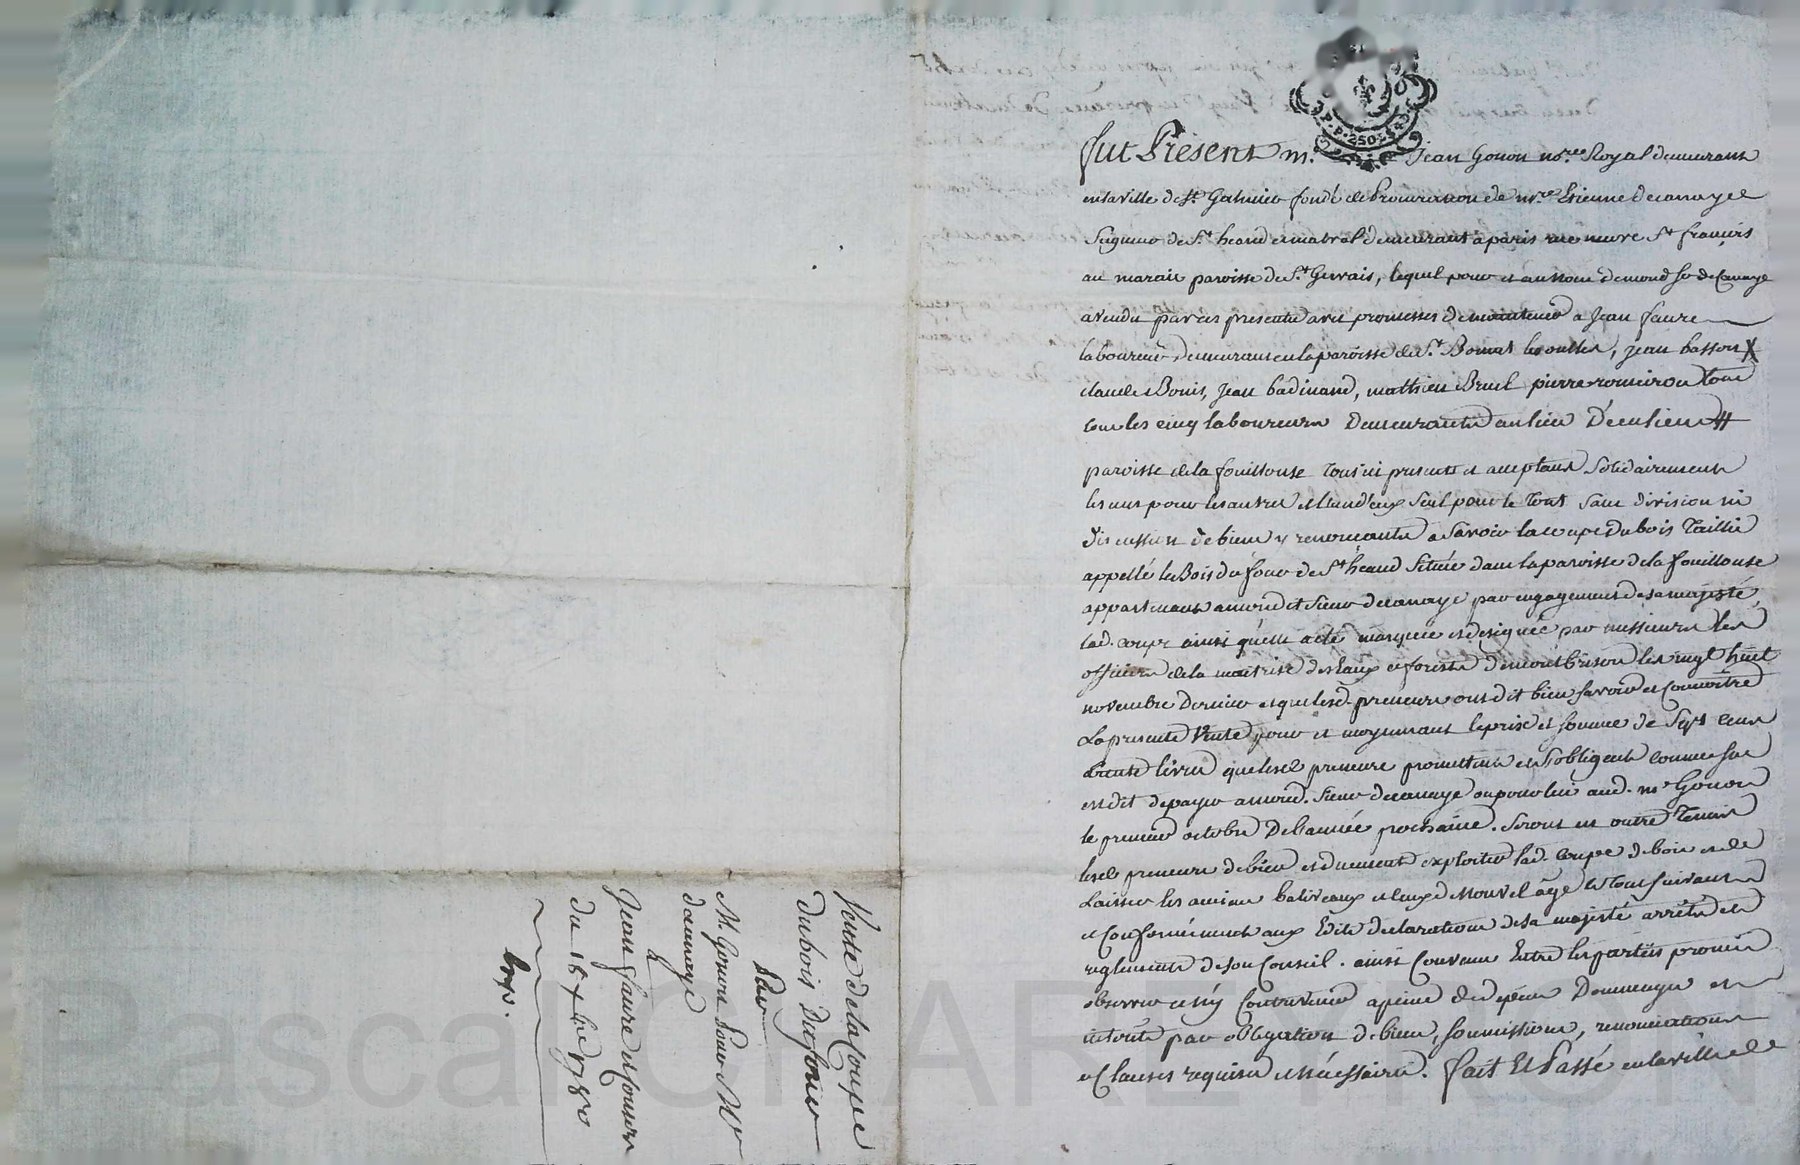 fut Present m.e Jean Gonon no.re Royal demeurant
en la ville de St. Galmier fondé de Procuration de m.re Etienne de canaye
Seigneur de St. heand et malval demeurant a paris rue neuve St françois
au marais paroisse de St. Gervais, lequel pour et au nom de mond. Sr de Canaye
a vendu par ces presentes avec promesses de maintenir a Jean faure
laboureur demeurant en la paroisse de St. Bonnet les oulles, jean basson
claude Bonis, jean badinand, mathieu Brul pierre romeirou tous
tous les cinq laboureurs Demeurants au lieu D'eculieu
paroisse de la fouillouse tous ici presents et acceptans Solidairement
les uns pour les autres et l'un d'eux seul pour le tout sans division ni
discussion de biens y renonceants a savoir la coupe du bois Taillis
appellé le Bois du four de St heand Située dans la paroisse de la fouillouse
appartenant a mondit sieur de canaye par engagement de sa majesté,
lad. coupe ainsi qu'elle a été marquée et designée par messieurs les
officiers de la maitrise des Eaux et forests de montbrison les vingt huit
novembre Dernier et que lesd. preneurs ont dit bien savoir et Connoitre
La presente Vente pour et moyennant le prix et somme de Sept Cent
trente livres que lesd. preneurs promettent et s'obligent comme sus
est dit de payer a mond. Sieur de canaye ou pour lui aud. m.e Gonon
le premier octobre De l'année prochaine. Seront en outre Tenus
lesd. preneurs de bien et duement exploiter lad. coupe de bois et de
Laisser les anciens baliveaux et ceux de nouvel age le tout suivant
et Conformément aux Edits declarations de sa majesté arrêts et
reglements de son Conseil. ainsi Convenu Entre les parties promis
observer et n'y Contrevenir a peine de depens Dommages et
interets par obligation de biens, soumissions, renonciations
et Clauses requises et nécessaires. fait Et Passé en la ville de
Vente de la Coupe
du bois Du four
Par
M. Gonon Pour Mr
de canaye
a
Jean faure et Consors
du 15 xbre 1780
P.P. 250
Pascal CHAREYRON